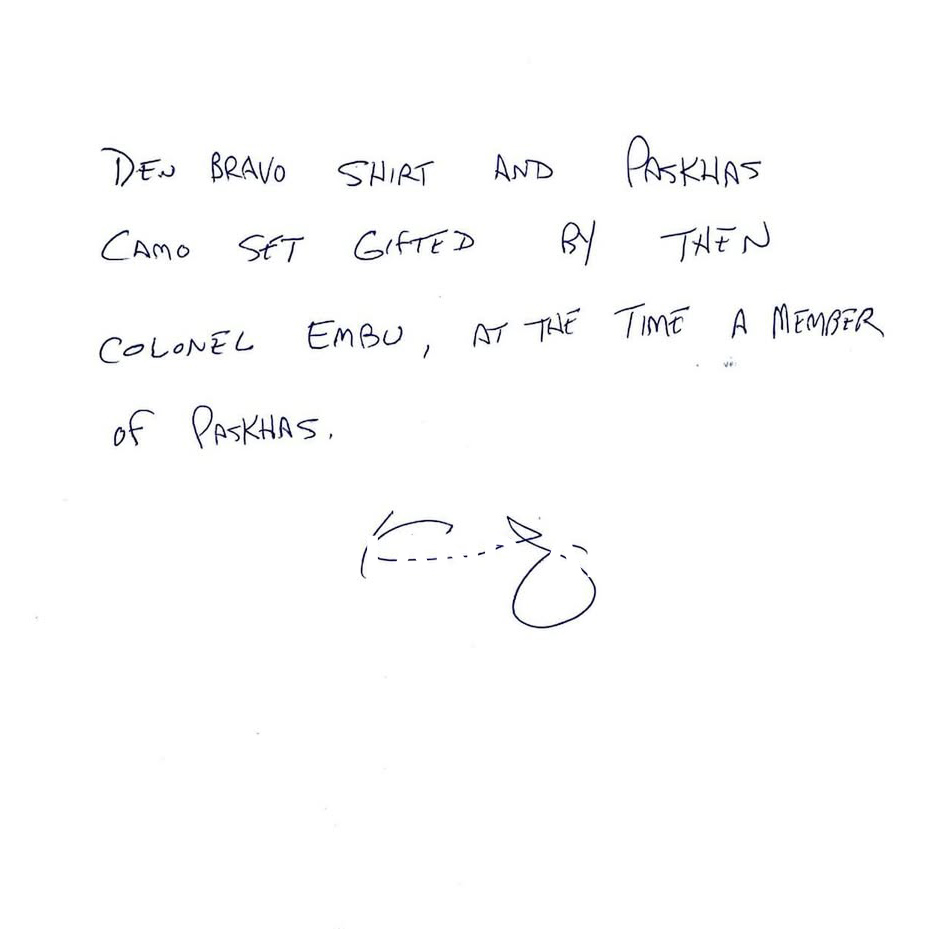 DEN BRAVO SHIRT AND PASKHAS
CAMO SET GIFTED BY THEN
COLONEL EMBU, AT THE TIME A MEMBER
OF PASKHAS.